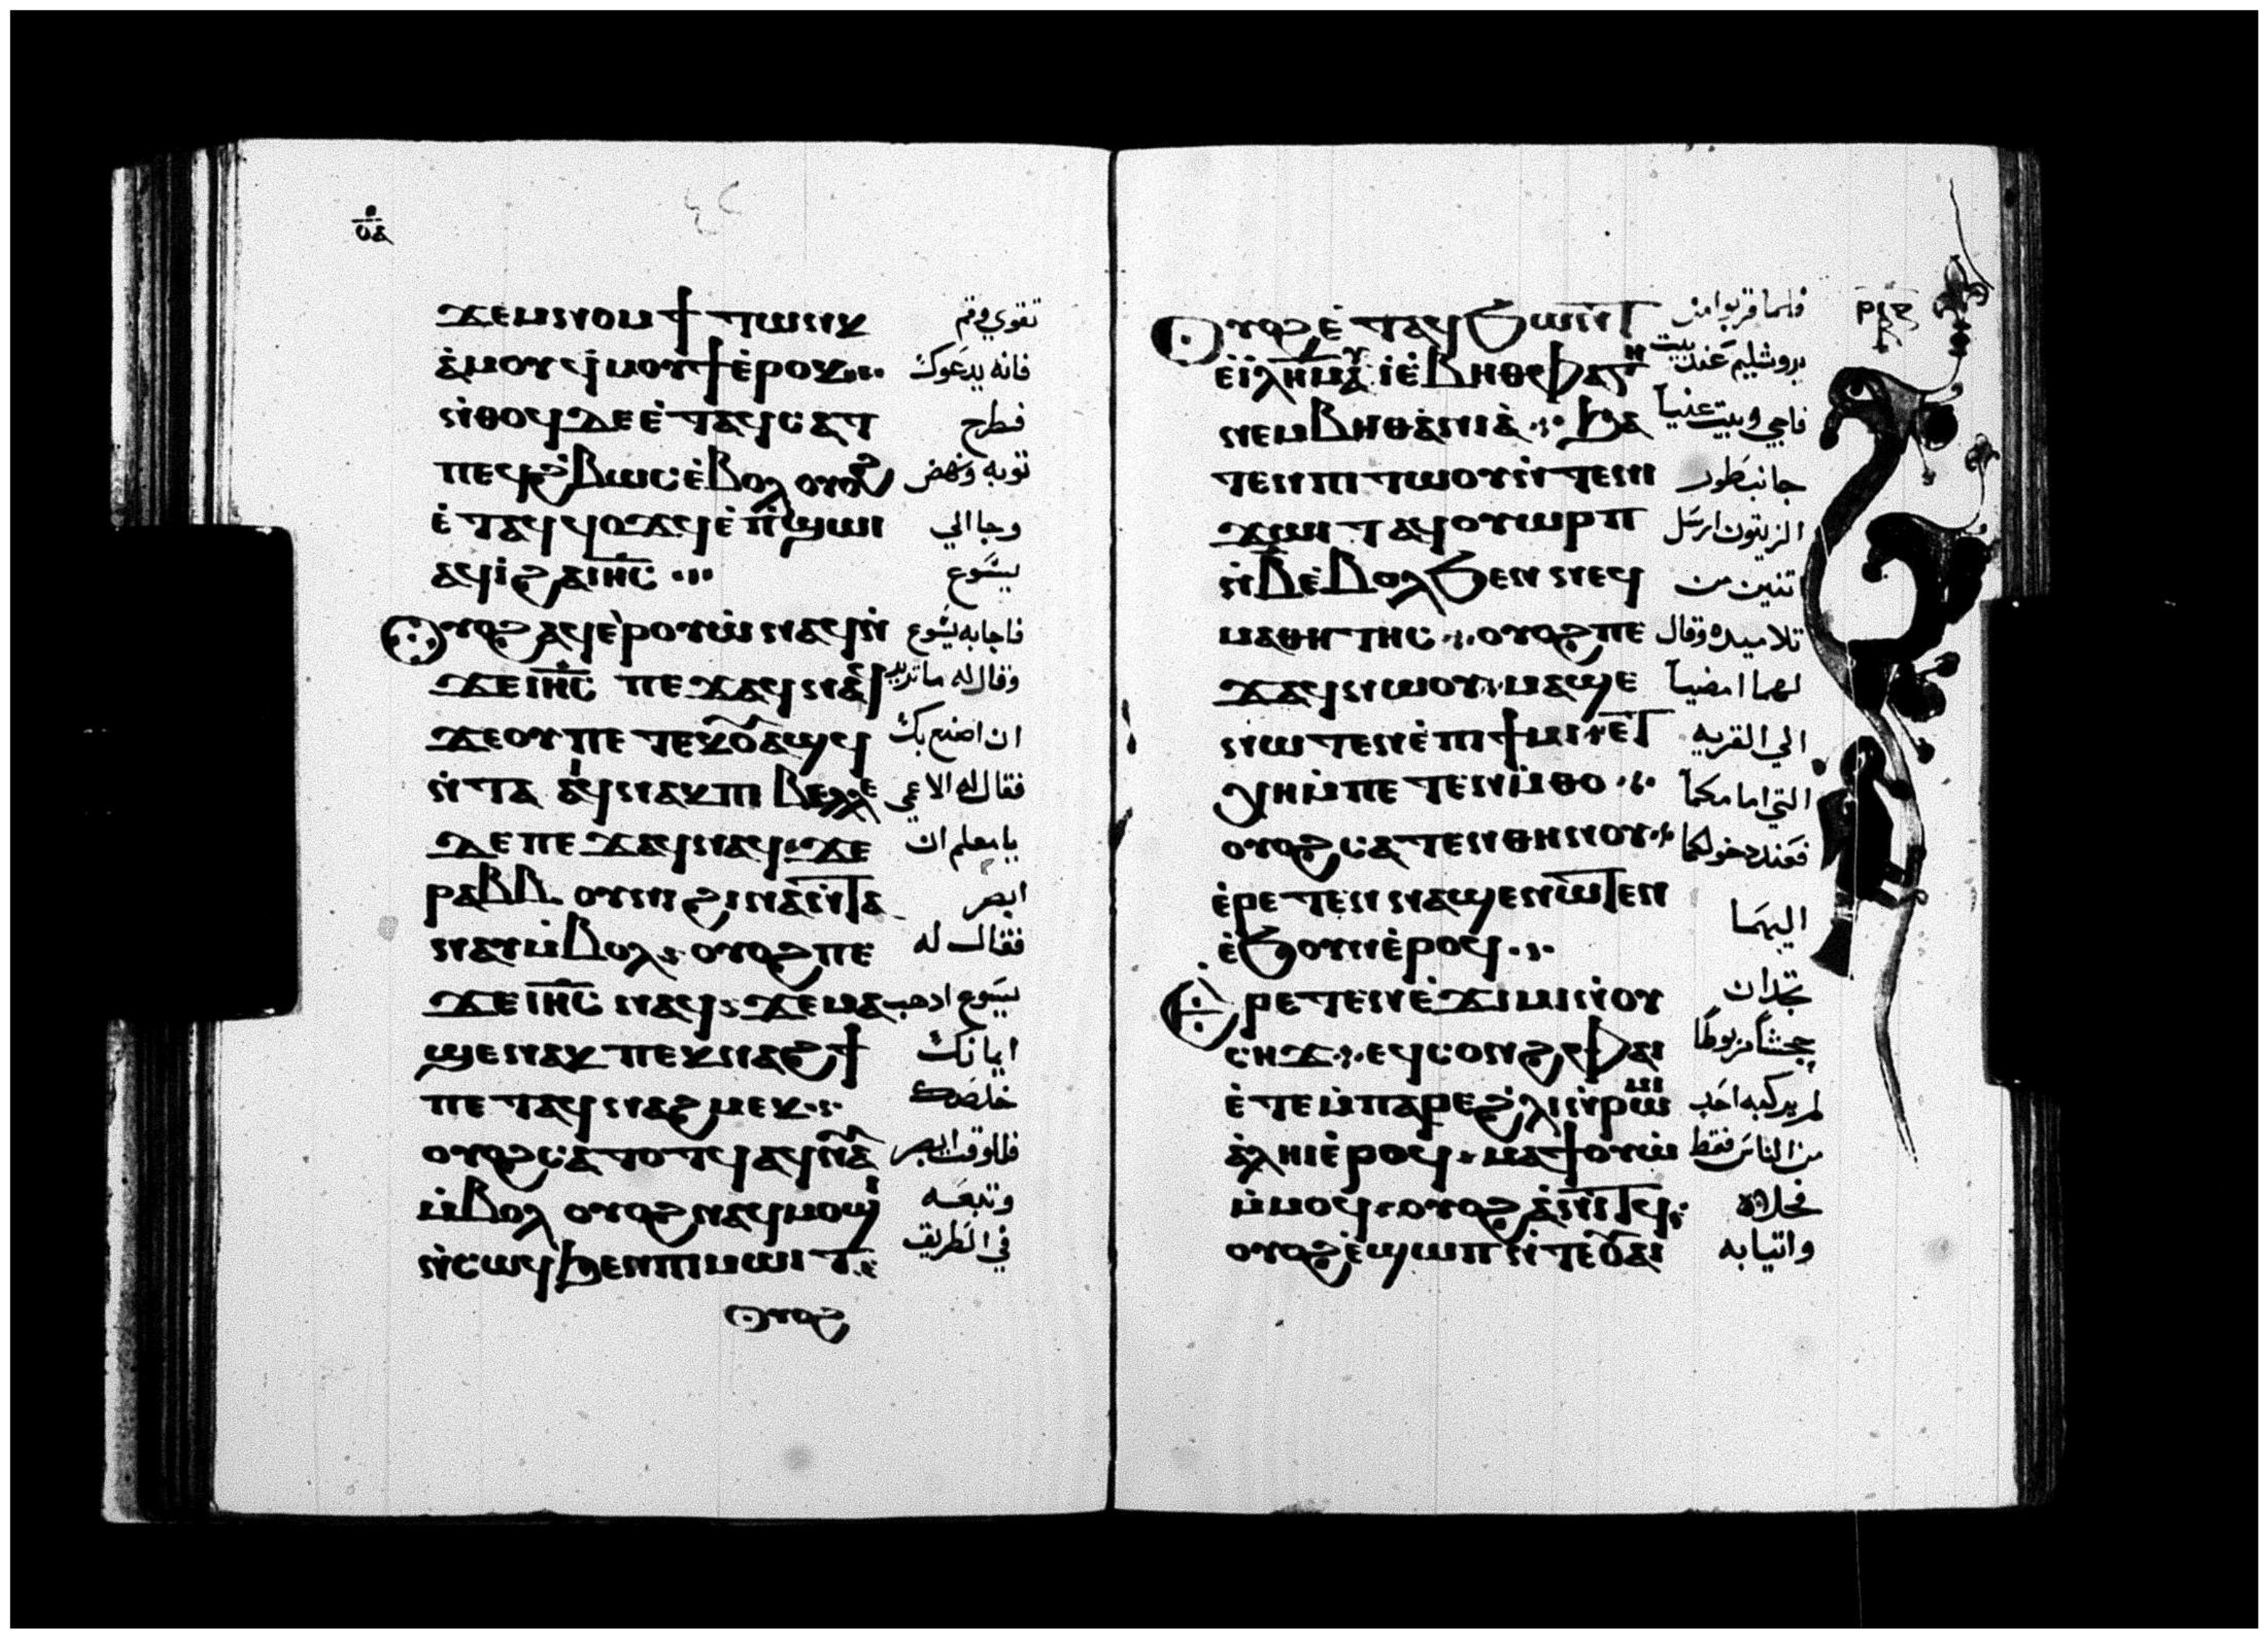 ⲟⲁ
ϫⲉⲙⲛⲟⲙϯ ⲧⲱⲛⲕ تقوي وقم
ⲁ̀ⲙⲟⲩ ϥ̀ⲙⲟⲩϯ ⲉ̀ⲣⲟⲕ فانه يدعوك
ⲛ̀ⲑⲟϥ ⲇⲉ ⲉ̀ⲧⲁϥⲥⲁⲧ فطرح
ⲡⲉϥϩ̀ⲃⲱⲥ ⲉ̀ⲃⲟⲗ ⲟⲩⲟϩ ثوبه ونهض
ⲉ̀ⲧⲁϥϥⲟϫϥ ⲉ̀ⲡ̀ϣⲱⲓ وجا الي
ⲁϥⲓ̀ ϩⲁ ⲓⲏ̅ⲥ̅ يسوع
ⲟⲩⲟϩ ⲁϥⲉ̀ⲣⲟⲩⲱ̀ ⲛⲁϥ ⲛ̀ فاجابه يسوع
ϫⲉ ⲓⲏ̅ⲥ̅ ⲡⲉϫⲁϥ ⲛⲁϥ وقال له ما تريد
ϫⲉ ⲟⲩ ⲡⲉⲧⲉⲕⲟⲩⲁϣϥ ان اصنع بك
ⲛ̀ⲧⲁⲁⲓϥ ⲛⲁⲕ ⲡⲓⲃⲉⲗⲗⲉ فقال له الاعمي
ⲇⲉ ⲡⲉϫⲁϥ ⲛⲁϥ ϫⲉ يا معلم ان
ⲣⲁⲃⲃⲓ ⲟⲩⲛ ϩⲓⲛⲁ ⲛ̀ⲧⲁ ابصر
ⲛⲁⲩ ⲙ̀ⲃⲟⲗ ⲟⲩⲟϩ ⲡⲉ فقال له
ϫⲉ ⲓⲏ̅ⲥ̅ ⲛⲁϥ ϫⲉ ⲙⲁ يسوع اذهب
ϣⲉ ⲛⲁⲕ ⲡⲉⲕⲛⲁϩϯ ايمانك
ⲡⲉⲧⲁϥⲛⲁϩⲙⲉⲕ خلصك
ⲟⲩⲟϩ ⲥⲁⲧⲟⲧϥ ⲁϥⲛⲁ فللوقت ابصر
ⲙ̀ⲃⲟⲗ ⲟⲩⲟϩ ⲛⲁϥⲙⲟϣⲓ وتبعه
ⲛ̀ⲥⲱϥ ϧⲉⲛ ⲡⲓⲙⲱⲓⲧ في الطريق
ⲟⲩⲟϩ
ⲟⲩⲟϩ ⲉ̀ⲧⲁϥϧⲱⲛⲧ فلما قربوا من
ⲉ̀ⲓ̀ⲗⲏ̅ⲙ̅ ⲉ̀ⲃⲏⲑⲫⲁⲅⲏ يروشليم عند بيت
ⲛⲉⲙ ⲃⲏⲑⲁ̀ⲛⲓⲁ̀ ϧⲁ فاجي وبيت عنيا
ⲧⲉⲛ ⲡⲓⲧⲱⲟⲩ ⲛ̀ⲧⲉ ⲛⲓ جانب طور
ϫⲱⲓⲧ ⲁϥⲟⲩⲱⲣⲡ الزيتون ارسل
ⲛ̀ⲃ̅ ⲉ̀ⲃⲟⲗ ϧⲉⲛ ⲛⲉϥ اتنين من
ⲙⲁⲑⲏⲧⲏⲥ ⲟⲩⲟϩ ⲡⲉ تلاميده وقال
ϫⲁϥ ⲛⲱⲟⲩ ⲙⲁϣⲉ لهما امضيا
ⲛⲱⲧⲉⲛ ⲉ̀ⲡⲓϯⲙⲓ ⲉⲧ الي القريه
ⲭⲏ ⲙ̀ⲡⲉⲧⲉⲛⲙ̀ⲑⲟ التي امامكما
ⲟⲩⲟϩ ⲥⲁⲧⲉⲛⲑⲏⲛⲟⲩ فعند دخولكما
ⲉ̀ⲣⲉⲧⲉⲛⲛⲁϣⲉⲛⲱⲧⲉⲛ اليها
ⲉ̀ϧⲟⲩⲛ ⲉ̀ⲣⲟϥ
ⲉⲣⲉⲧⲉⲛⲉ̀ϫⲓⲙⲓ ⲛ̀ⲟⲩ تجدان
ⲥⲏϫ ⲉϥⲥⲟⲛϩ ⲫⲁⲓ جحشا مربوطا
ⲉ̀ⲧⲉ ⲙ̀ⲡⲁⲣⲉ ϩ̀ⲗⲓ ⲛ̀ⲣⲱⲙⲓ لم يركبه احد
ⲁ̀ⲗⲏⲓ ⲉ̀ⲣⲟϥ ⲙⲁϯⲟⲩⲱ̀ من الناس فقط
ⲙ̀ⲙⲟϥ ⲟⲩⲟϩ ⲁ̀ⲛⲓⲧϥ فحلاه
ⲟⲩⲟϩ ⲉ̀ϣⲱⲡ ⲛ̀ⲧⲉ ⲟⲩⲁⲓ واتيا به